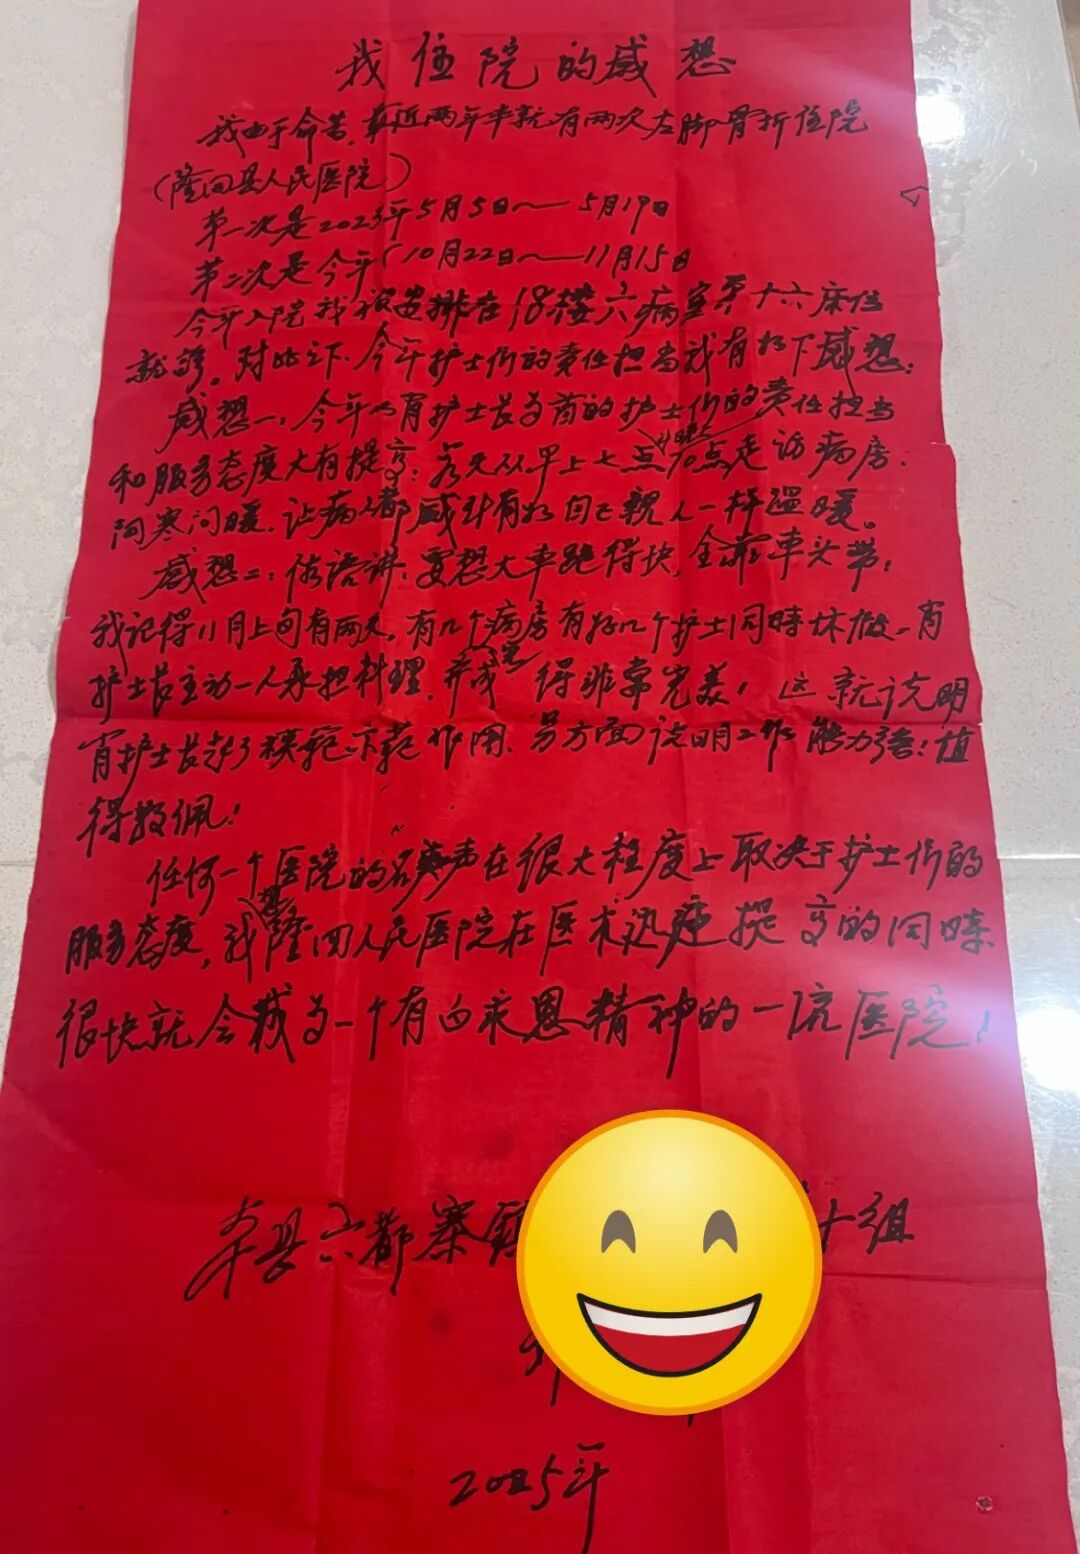 我住院的感想
我由于命苦,最近两年半就有两次左脚骨折住院
(隆回县人民医院)
第一次是2023年5月5日～5月19日
第二次是今年(10月22日～11月15日
今年入院我被安排在18楼六病室第十六床位
就够。对比之下,今年护士们的责任担当我有如下感想:
感想一,今年以肖护士长为首的护士们的责任担当
和服务态度大有提高:每天从早上七点晚上九点走访病房
问寒问暖,让病人都感到有如自己亲人一样温暖。
感想二:俗语讲:要想大车跑得快,全靠车头带;
我记得11月上旬有两天,有几个病房有好几个护士同时休假,肖
护士长主动一人承担料理,并完成得非常完美!这就说明
肖护士长起了模范示范作用,另方面说明工作能力强;值
得敬佩!
任何一个医院的名声在很大程度上取决于护士们的
服务态度,我隆回人民医院在医术迅速提高的同时
很快就会成为一个有白求恩精神的一流医院!
本县六都寨镇
十组
2025年